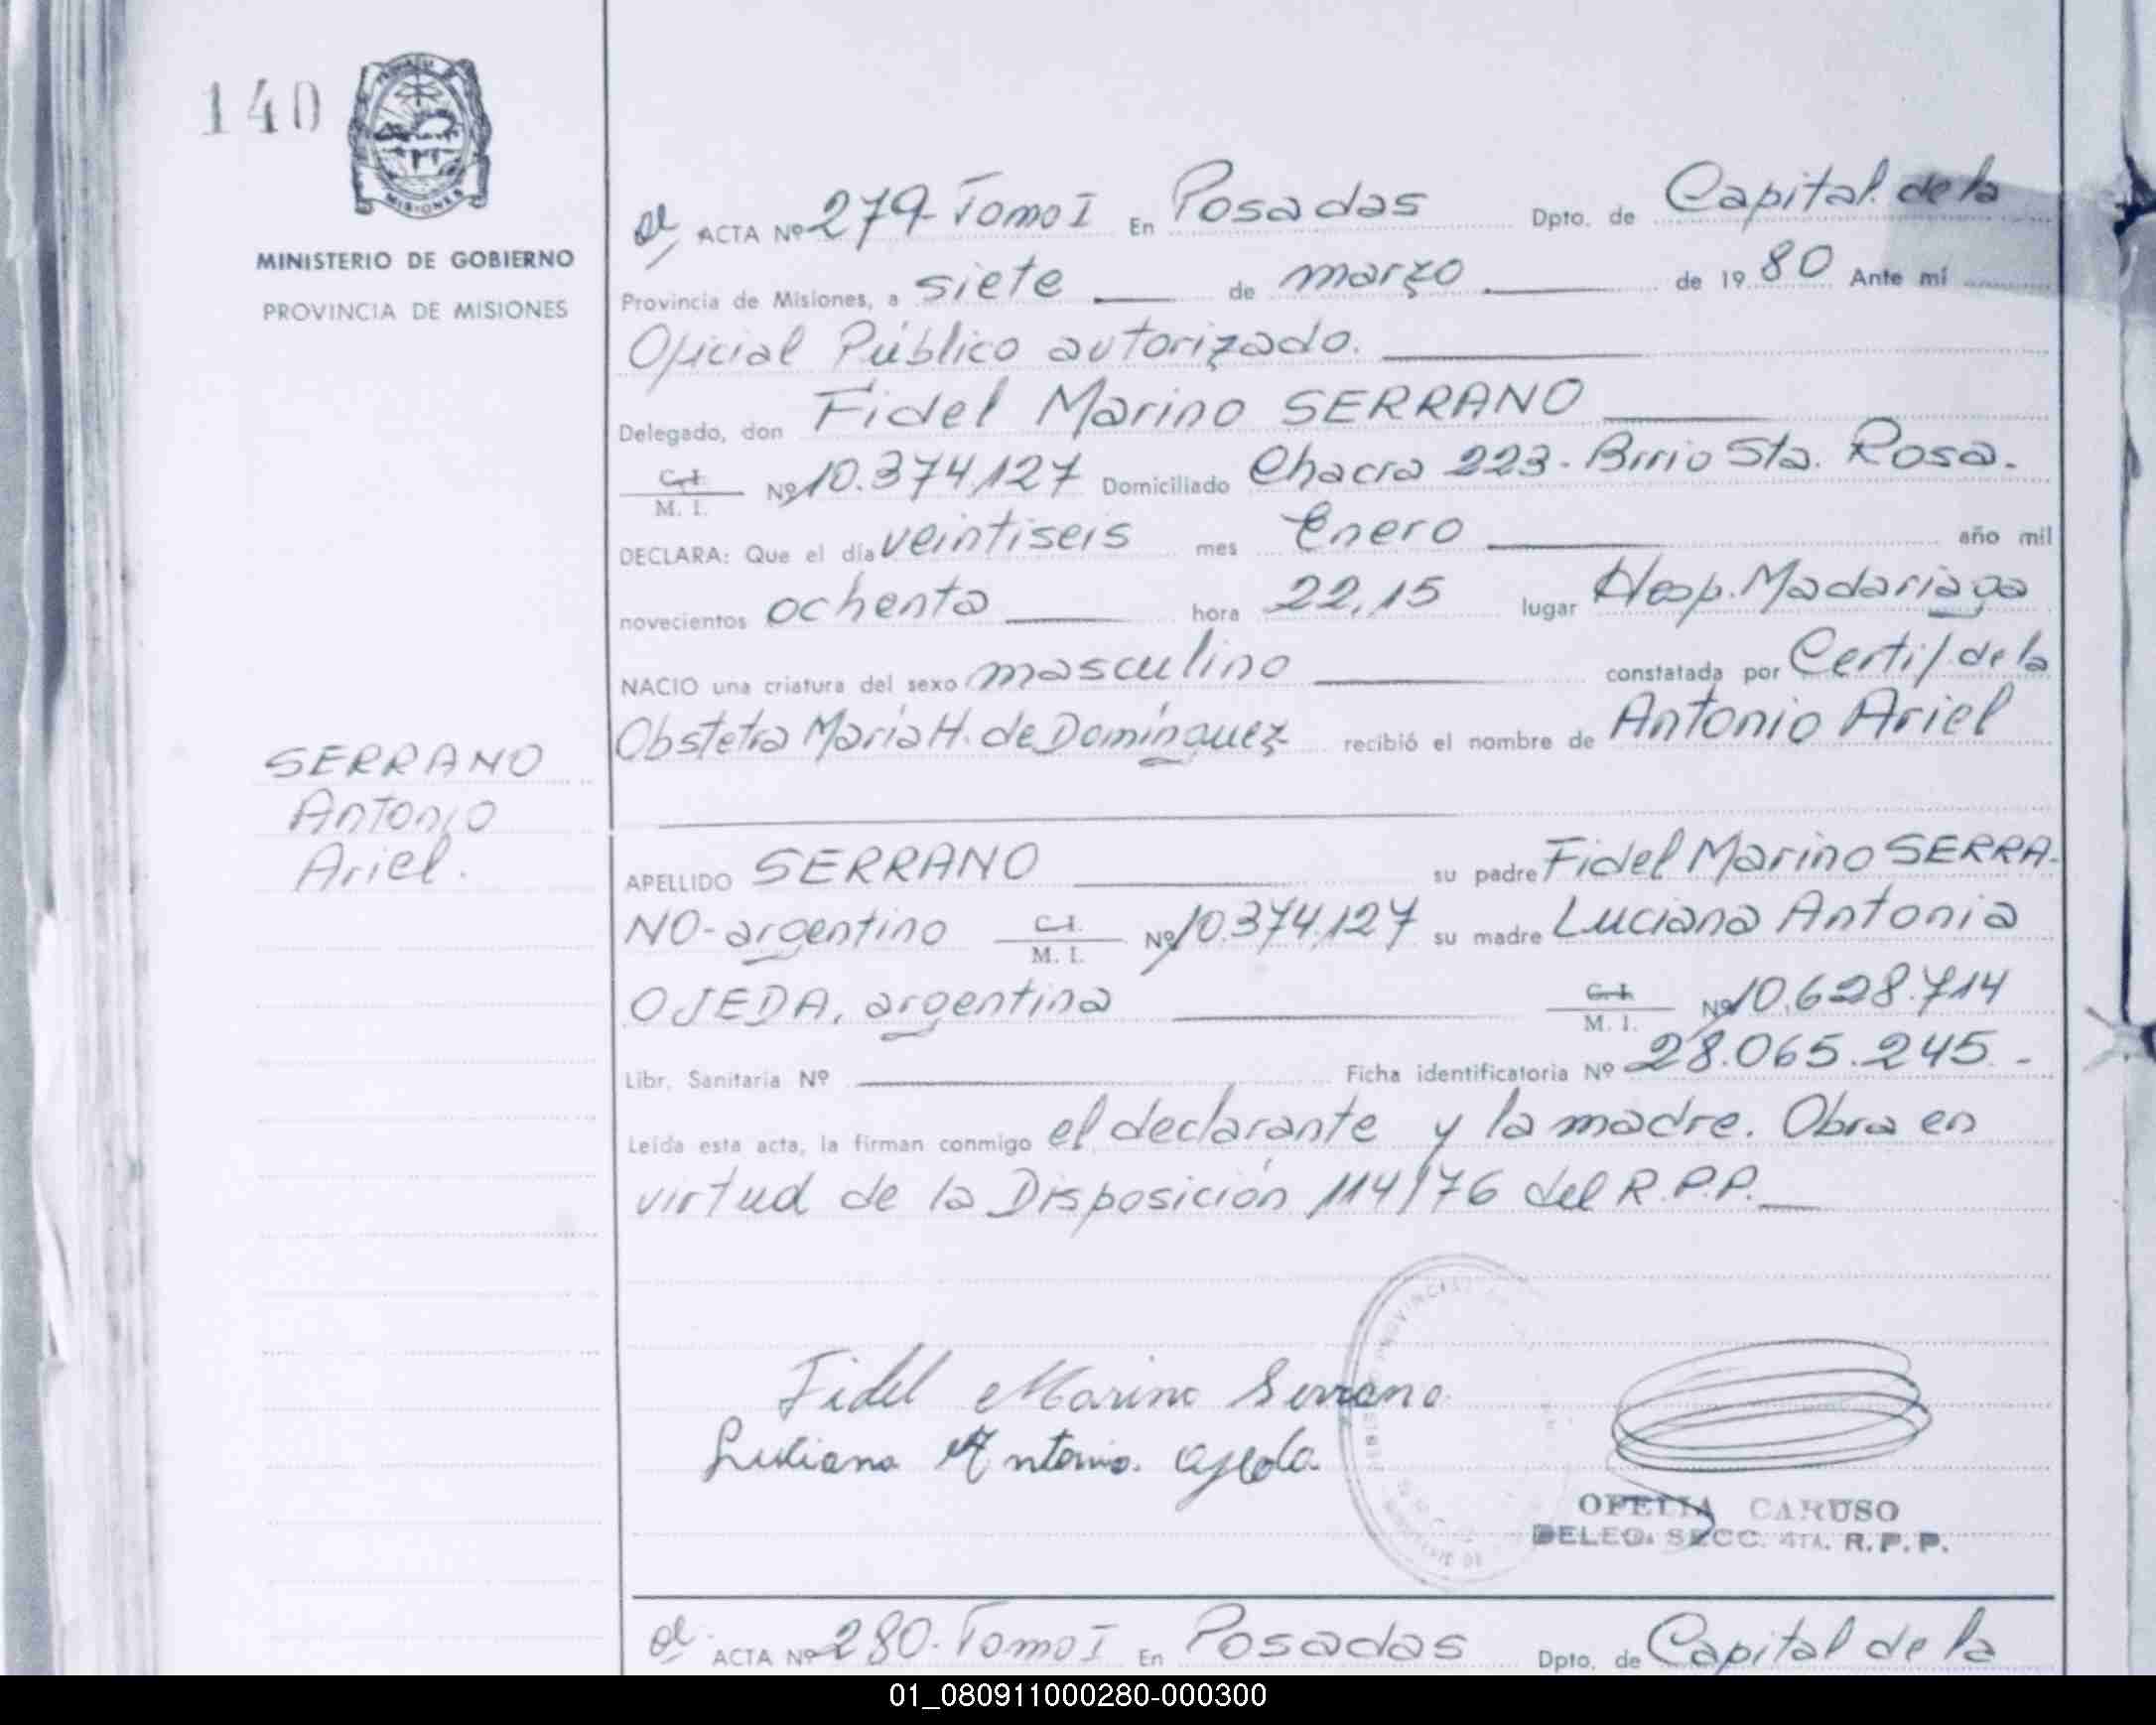 140
MISIONES
MINISTERIO DE GOBIERNO
PROVINCIA DE MISIONES
SERRANO
Antonio
Ariel.
ACTA Nº 279 - Tomo I En Posadas Dpto. de Capital de la
Provincia de Misiones, a siete de marzo de 19 80 Ante mí
Oficial Público autorizado.
Delegado, don Fidel Marino SERRANO
C. I. / M. I. Nº 10.374,127 Domiciliado Chacra 223 - Brrio Sta. Rosa.
DECLARA: Que el día veintiseis mes Enero año mil
novecientos ochenta hora 22,15 lugar Hosp. Madariaga
NACIO una criatura del sexo masculino constatada por Certif de la
Obstetra María H. de Domínguez recibió el nombre de Antonio Ariel
APELLIDO SERRANO su padre Fidel Marino SERRA-
NO - argentino C. I. / M. I. Nº 10.374,127 su madre Luciana Antonia
OJEDA, argentina C. I. / M. I. Nº 10.628.714
Libr. Sanitaria Nº Ficha identificatoria Nº 28.065.245 -
Leída esta acta, la firman conmigo el declarante y la madre. Obra en
virtud de la Disposición 114/76 del R.P.P.
Fidel Marino Serrano
Luciana Antonia Ojeda
OFELIA CARUSO
DELEG. SECC. 4TA. R.P.P.
ACTA Nº 280 - Tomo I En Posadas Dpto. de Capital de la
01_080911000280-000300